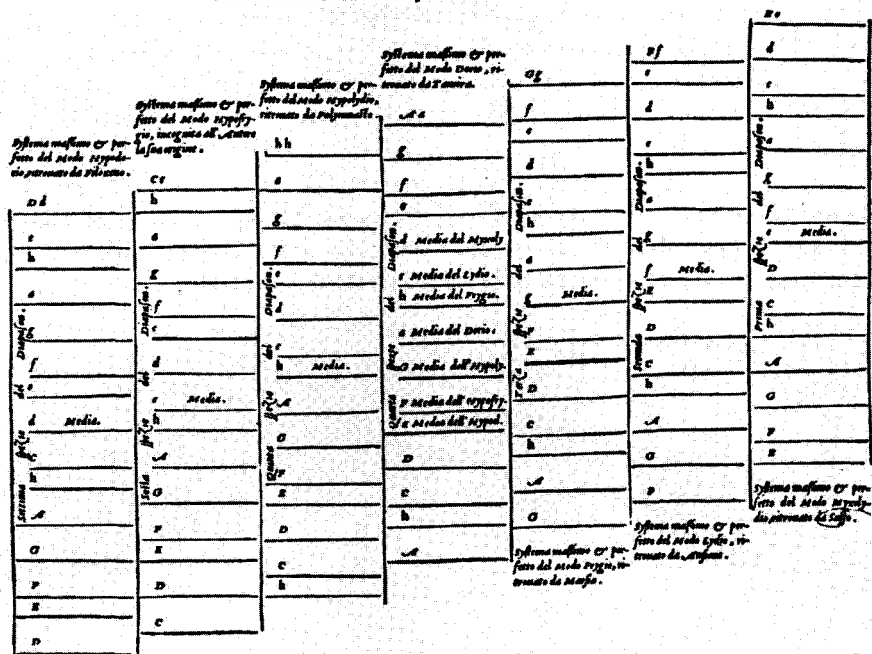 Systema massimo & per-
fetto del Modo Hypodo-
rio, ritrouato da Filosseno.
D d
c
h
a
g
f
e
d Media.
c
h
A
G
F
E
D
Settima spezie del Diapason.
Systema massimo & per-
fetto del Modo Hypofry-
gio, incognita all' Autore
la sua origine.
C c
h
a
g
f
e
d
c Media.
h
A
G
F
E
D
C
Sesta spezie del Diapason.
Systema massimo & per-
fetto del Modo Hypolydio,
ritrouato da Polymnasto.
h h
a
g
f
e
d
c
h Media.
A
G
F
E
D
C
h
Quinta spezie del Diapason.
Systema massimo & per-
fetto del Modo Dorio, ri-
trouato da Tamira.
A a
g
f
e
d Media del Mysoly
c Media del Lydio.
h Media del Frygio.
a Media del Dorio.
G Media dell' Hypoly.
F Media dell' Hypofry.
E Media dell' Hypod.
D
C
h
A
Quarta spezie del Diapason.
G g
f
e
d
c
h
a
g Media.
F
E
D
C
h
A
G
Terza spezie del Diapason.
Systema massimo & per-
fetto del Modo Frygio, ri-
trouato da Marsia.
F f
e
d
c
h
a
g
f Media.
E
D
C
h
A
G
F
Seconda spezie del Diapason.
Systema massimo & per-
fetto del Modo Lydio, ri-
trouato da
E e
d
c
h
a
g
f
e Media.
D
C
h
A
G
F
E
Prima spezie del Diapason.
Systema massimo & per-
fetto del Modo Mysoly-
dio, ritrouato da Saffo.